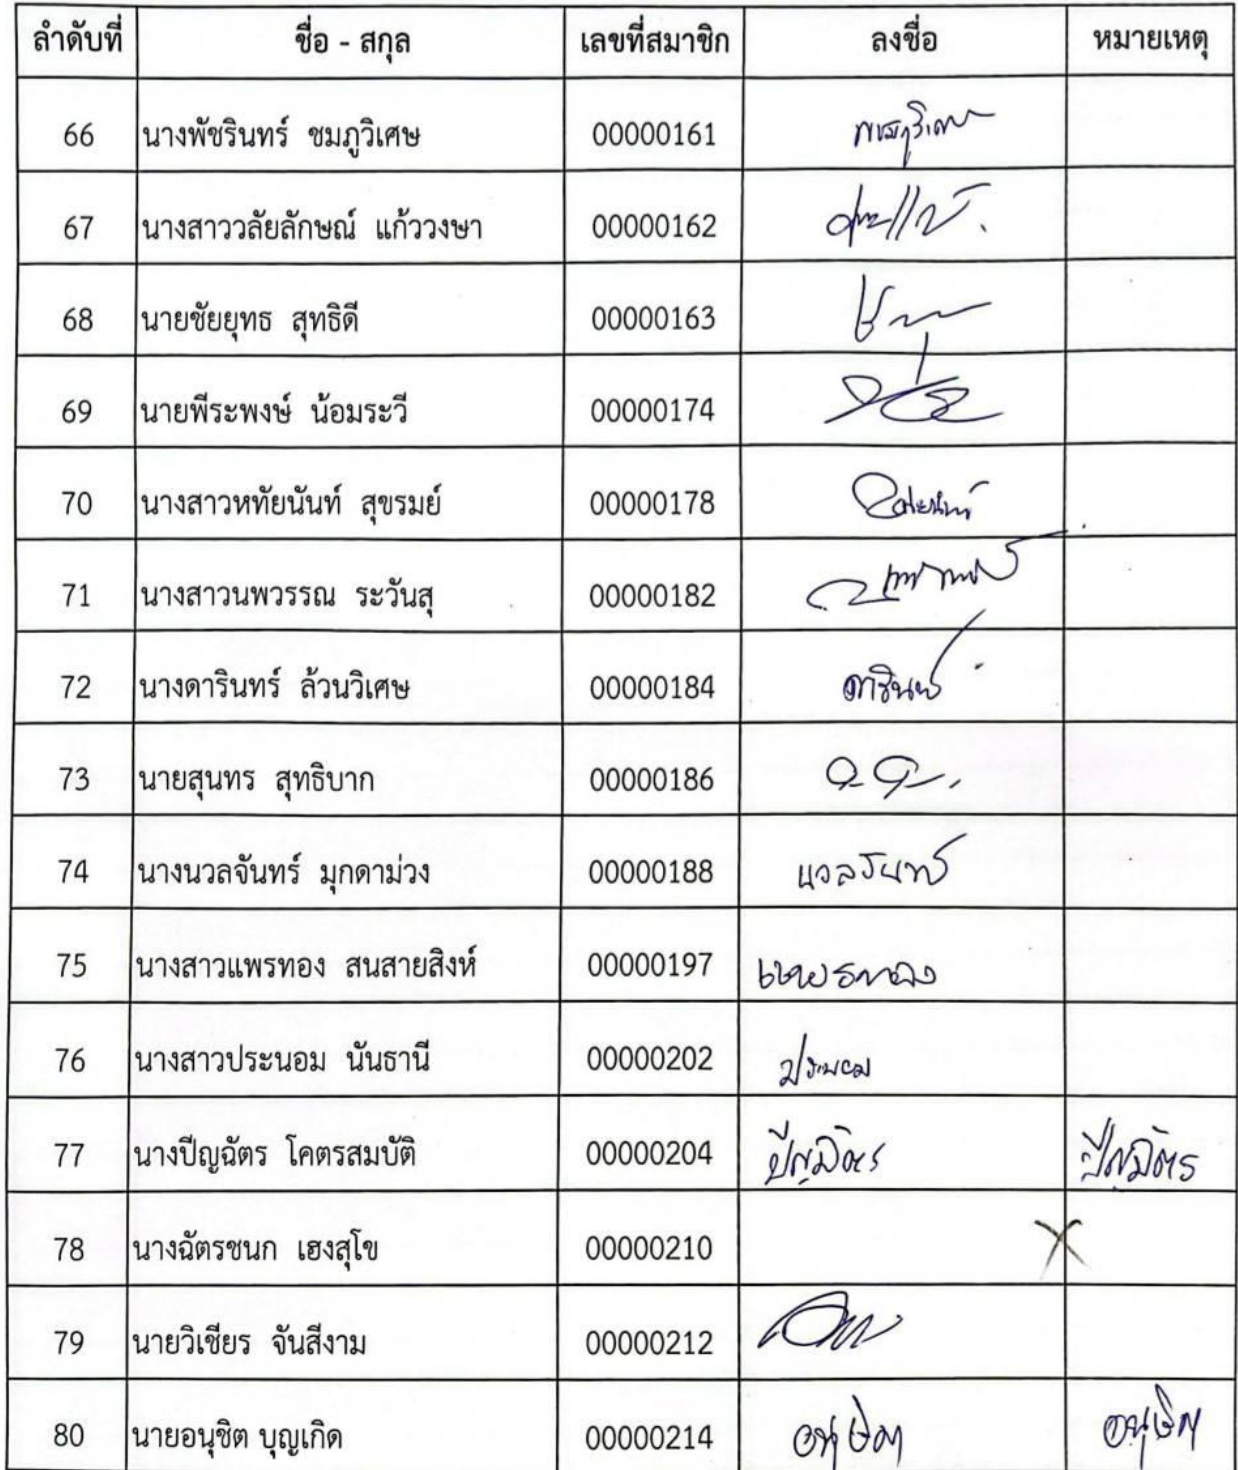 ลำดับที่ ชื่อ - สกุล เลขที่สมาชิก ลงชื่อ หมายเหตุ
66 นางพัชรินทร์ ชมภูวิเศษ 00000161
67 นางสาววลัยลักษณ์ แก้ววงษา 00000162
68 นายชัยยุทธ สุทธิดี 00000163
69 นายพีระพงษ์ น้อมระวี 00000174
70 นางสาวหทัยนันท์ สุขรมย์ 00000178
71 นางสาวนพวรรณ ระวันสุ 00000182
72 นางดารินทร์ ล้วนวิเศษ 00000184 ดารินทร์
73 นายสุนทร สุทธิบาก 00000186
74 นางนวลจันทร์ มุกดาม่วง 00000188 นวลจันทร์
75 นางสาวแพรทอง สนสายสิงห์ 00000197 แพรทอง
76 นางสาวประนอม นันธานี 00000202 ประนอม
77 นางปีญฉัตร โคตรสมบัติ 00000204 ปีญฉัตร ปีญฉัตร
78 นางฉัตรชนก เฮงสุโข 00000210 X
79 นายวิเชียร จันสีงาม 00000212
80 นายอนุชิต บุญเกิด 00000214 อนุชิต อนุชิต